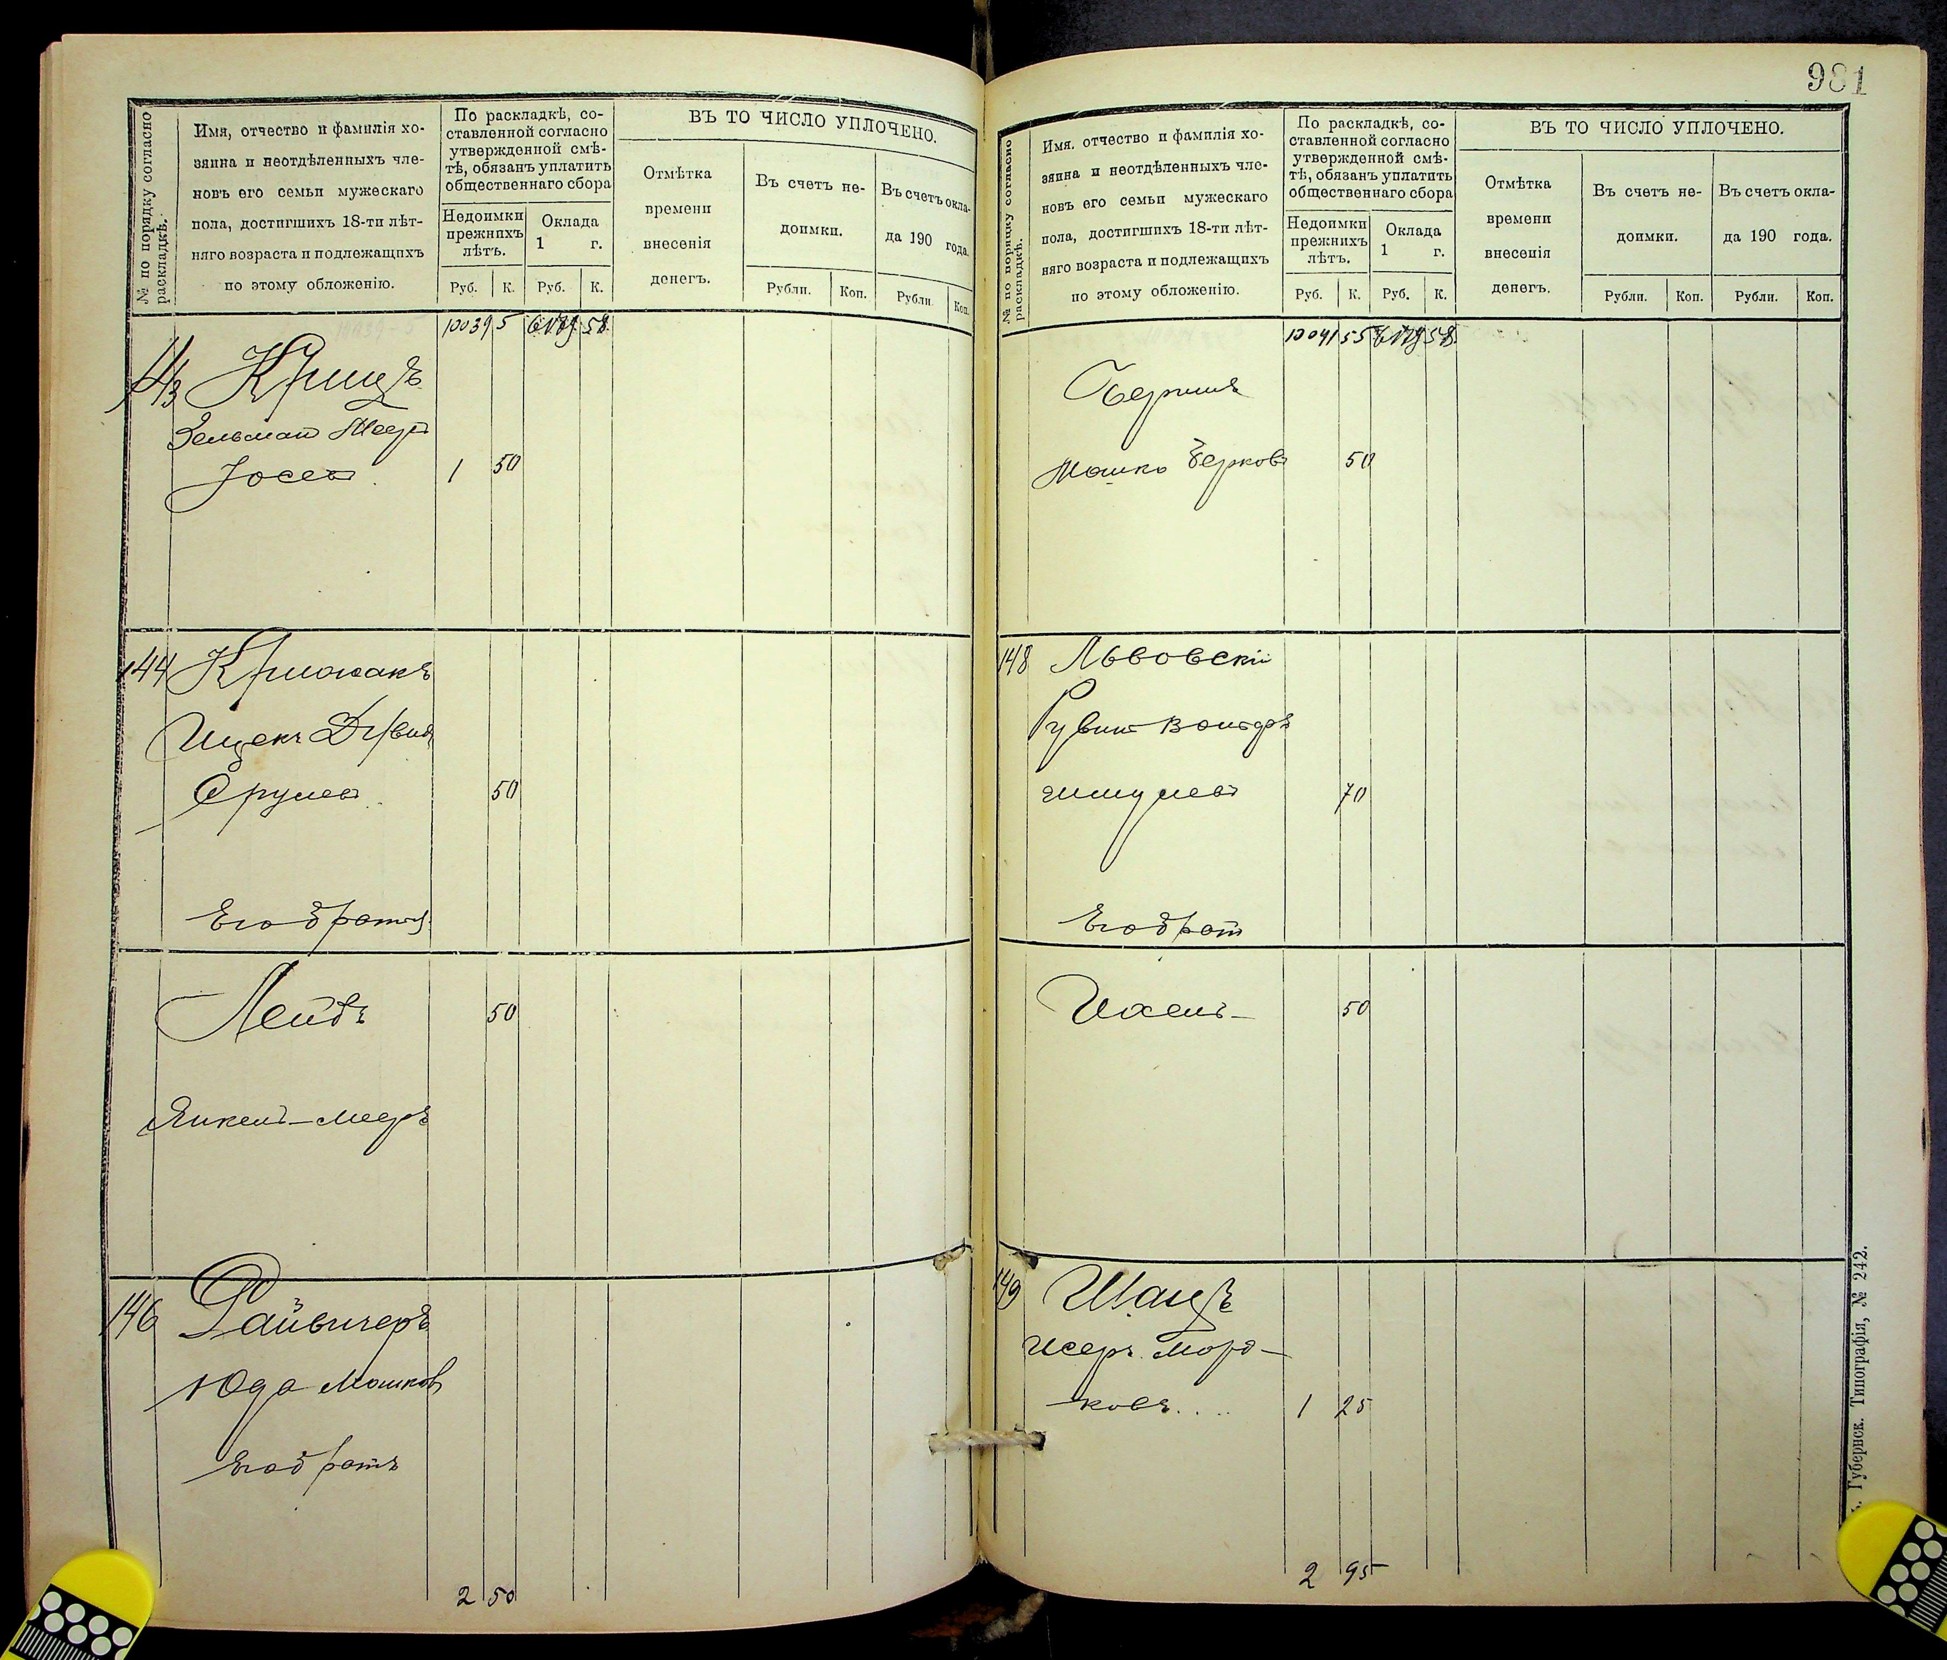 № по порядку согласно
раскладкѣ.
Имя, отчество и фамилія хо-
зяина и неотдѣленныхъ чле-
новъ его семьи мужескаго
пола, достигшихъ 18-ти лѣт-
няго возраста и подлежащихъ
по этому обложенію.
По раскладкѣ, со-
ставленной согласно
утвержденной смѣ-
тѣ, обязанъ уплатить
общественнаго сбора
Недоимки
прежнихъ
лѣтъ.
Оклада
1 г.
Руб. К. Руб. К.
ВЪ ТО ЧИСЛО УПЛОЧЕНО.
Отмѣтка
времени
внесенія
денегъ.
Въ счетъ не-
доимки.
Въ счетъ окла-
да 190 года.
Рубли. Коп. Рубли. Коп.
10039 5 58
Крицъ
Зельман Меер
Іосев 1 50
144 Крижакъ
Ицекъ Дувид
Срулев 50
Его братья
Лейбъ 50
Янкель-мееръ
146 Райвичеръ
Юда Мошков
Его братъ
2 50
981
№ по порядку согласно
раскладкѣ.
Имя, отчество и фамилія хо-
зяина и неотдѣленныхъ чле-
новъ его семьи мужескаго
пола, достигшихъ 18-ти лѣт-
няго возраста и подлежащихъ
по этому обложенію.
По раскладкѣ, со-
ставленной согласно
утвержденной смѣ-
тѣ, обязанъ уплатить
общественнаго сбора
Недоимки
прежнихъ
лѣтъ.
Оклада
1 г.
Руб. К. Руб. К.
ВЪ ТО ЧИСЛО УПЛОЧЕНО.
Отмѣтка
времени
внесенія
денегъ.
Въ счетъ не-
доимки.
Въ счетъ окла-
да 190 года.
Рубли. Коп. Рубли. Коп.
10041 55 58
Мошко Берковъ 50
148 Львовскій
Рувин Вольфъ
шмулев 70
Его брат
Ихель 50
149 Шацъ
Исеръ Морд-
ковъ 1 25
2 95
Губернск. Типографія, № 242.